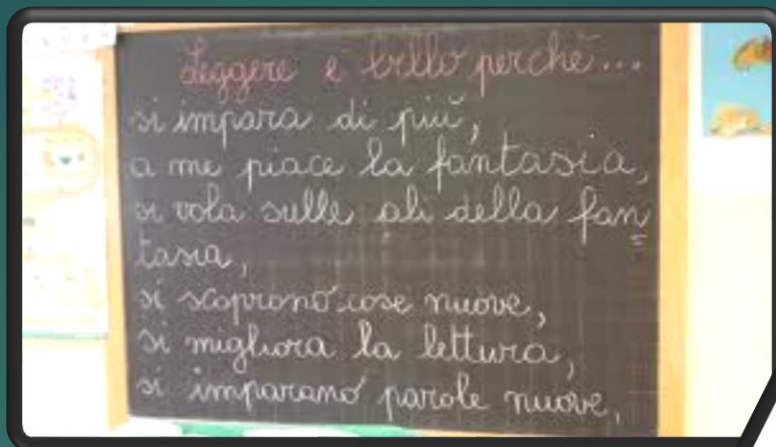 Leggere è bello perchè...
si impara di più,
a me piace la fantasia,
si vola sulle ali della fan
tasia,
si scoprono cose nuove,
si migliora la lettura,
si imparano parole nuove,